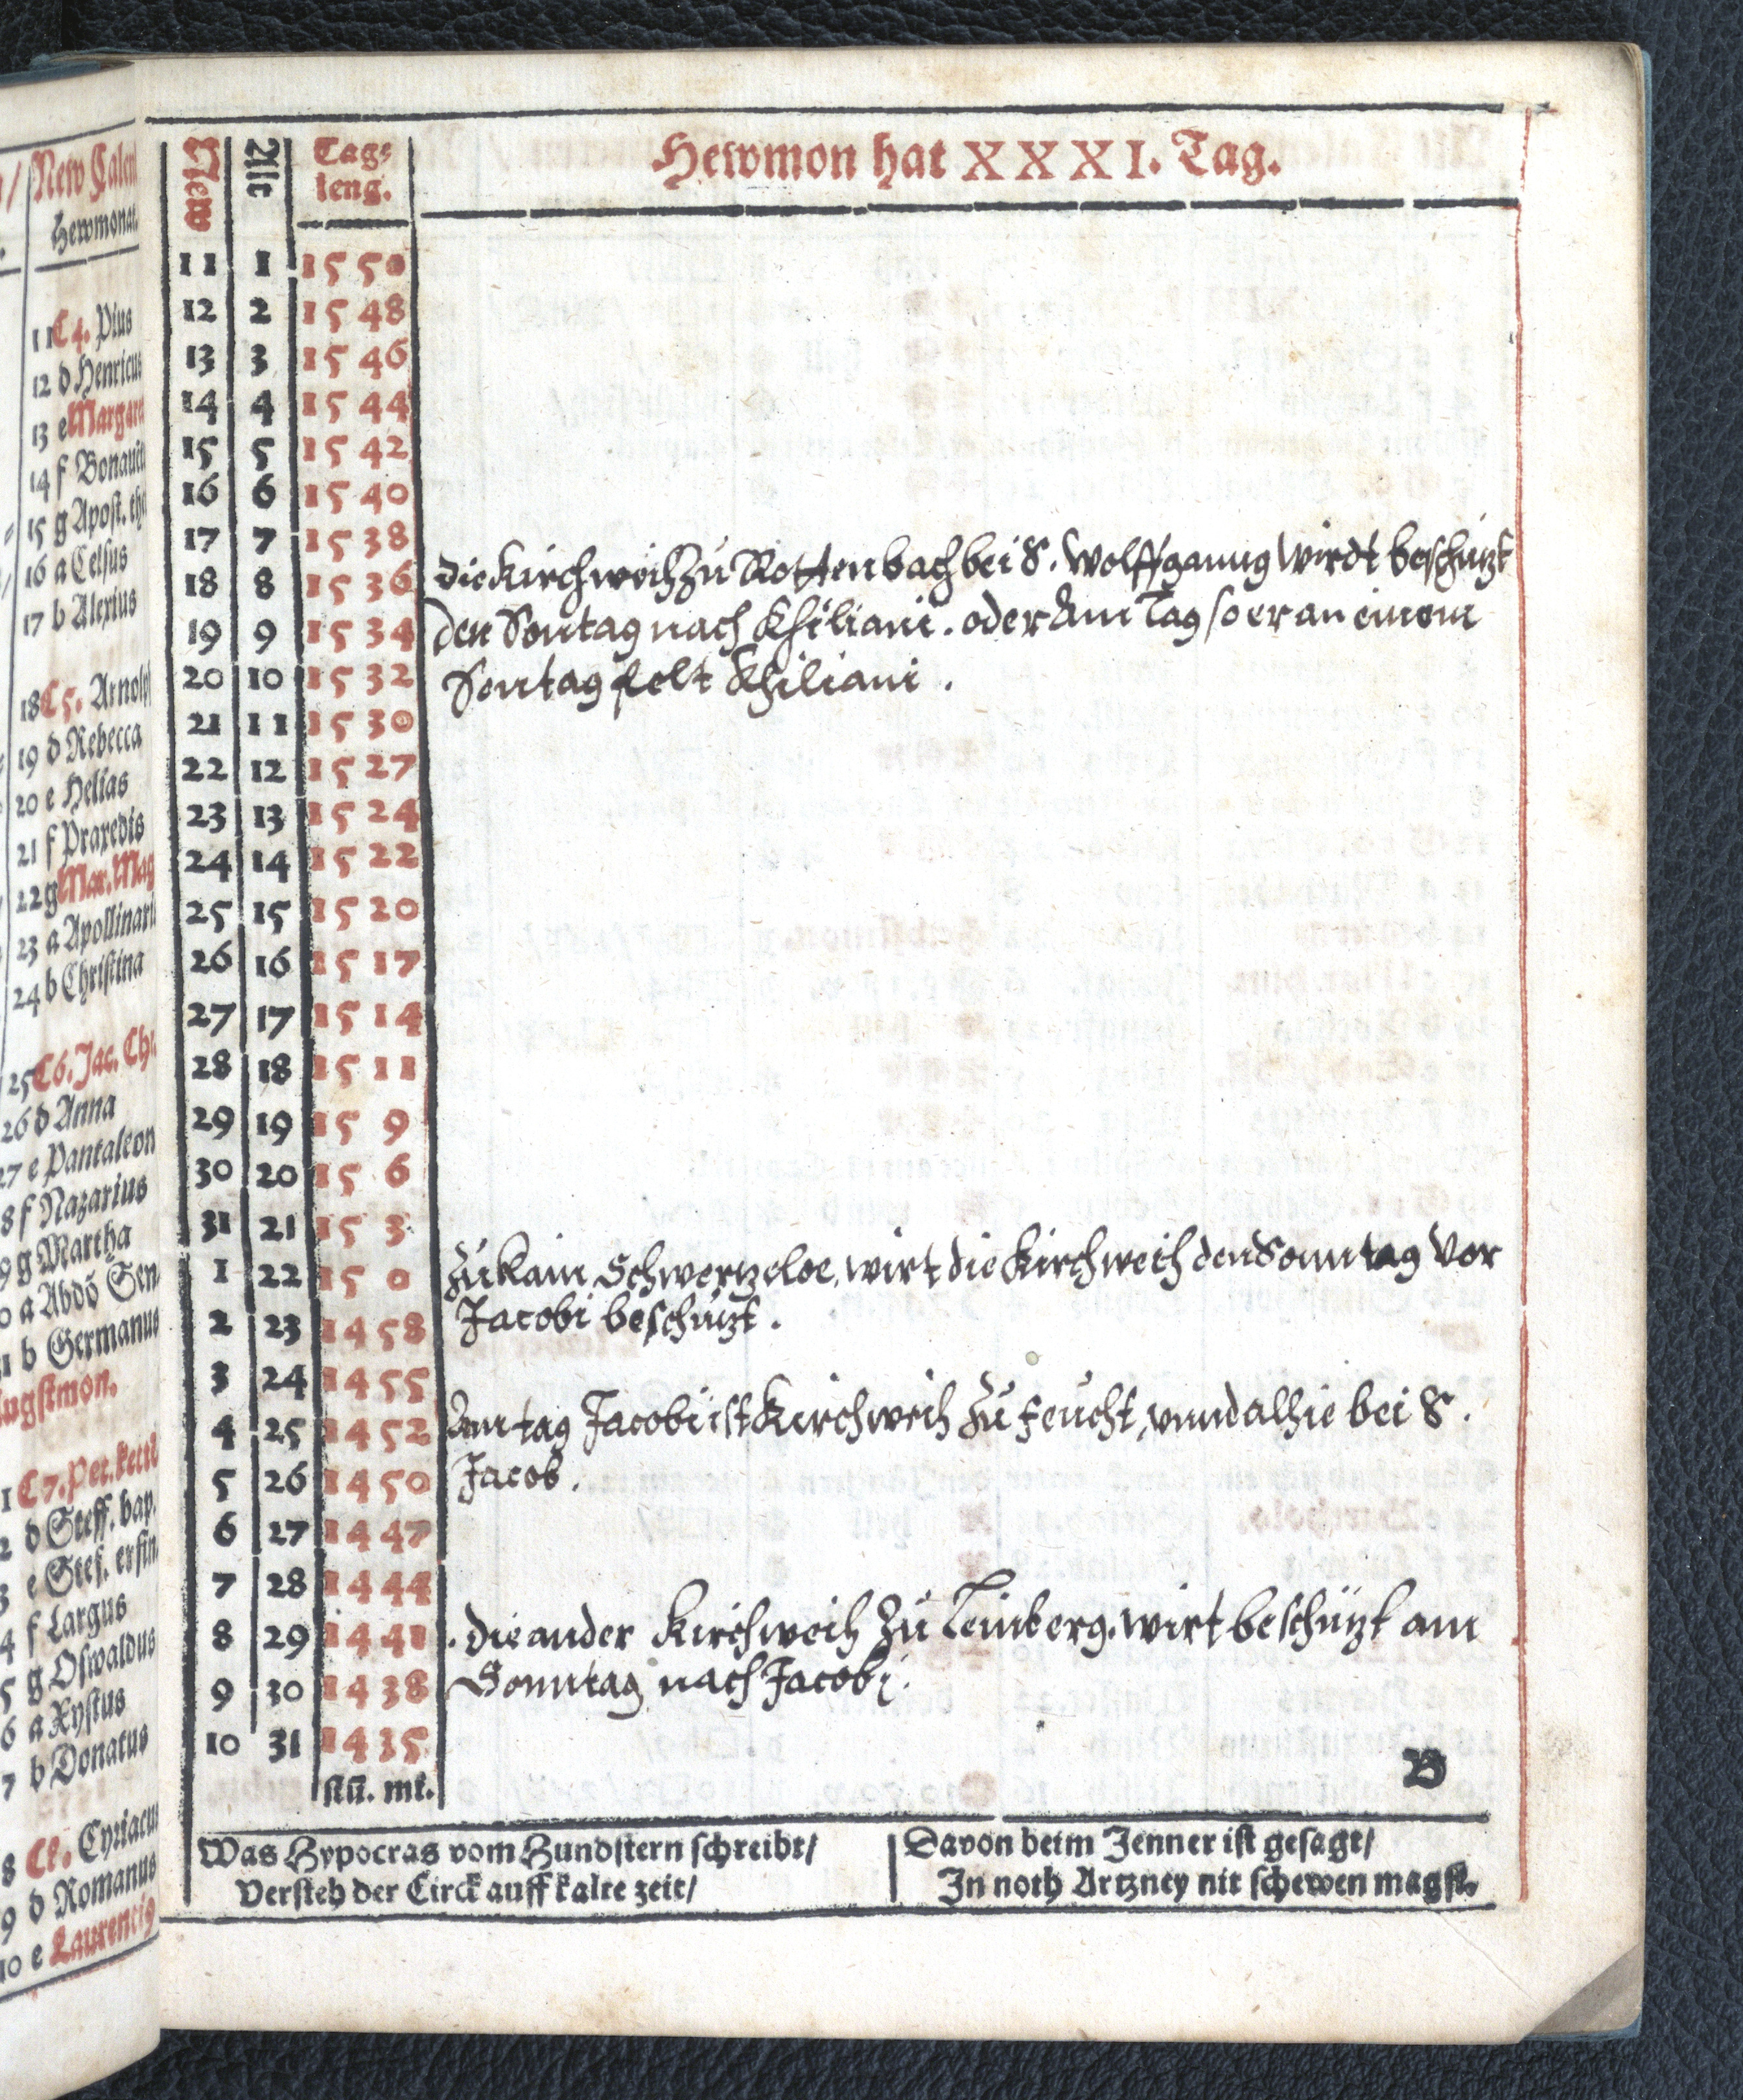 / New Calen
Hewmonat.
11 C 4. Pius
12 d Henricus
13 e Margare
14 f Bonauen
15 g Apost. the
16 a Celsus
17 b Alexius
18 C 5. Arnolp
19 d Rebecca
20 e Helias
21 f Praxedis
22 g Mar. Mag
23 a Apollinari
24 b Christina
25 C 6. Jac. Chr
26 d Anna
27 e Pantaleon
8 f Nazarius
9 g Martha
0 a Abdō Sen
1 b Germanus
ugstmon.
1 C 7. Pet. kette
2 d Steff. bap.
3 e Stef. erfin
4 f Largus
5 g Oswaldus
6 a Xystus
7 b Donatus
8 C 8. Cyriacus
9 d Romanus
10 e Laurentig
New Alt Tag= leng.
Hewmon hat XXXI. Tag.
11 1 15 50
12 2 15 48
13 3 15 46
14 4 15 44
15 5 15 42
16 6 15 40
17 7 15 38
18 8 15 36
19 9 15 34
20 10 15 32
21 11 15 30
22 12 15 27
23 13 15 24
24 14 15 22
25 15 15 20
26 16 15 17
27 17 15 14
28 18 15 11
29 19 15 9
30 20 15 6
31 21 15 3
1 22 15 0
2 23 14 58
3 24 14 55
4 25 14 52
5 26 14 50
6 27 14 47
7 28 14 44
8 29 14 41
9 30 14 38
10 31 14 35
stū. mt.
die Kirchweih zu Rottenbach bei S. Wolffganng wirdt beschuzt
den Sontag nach Khiliani. oder Am Tag so er an einem
Sontag felt Khiliani.
Zu kain Schwertzeloe, wirt die Kirchweih den Sonntag vor
Jacobi beschüzt.
Am tag Jacobi ist Kirchweih zu Feucht, vnnd alhie bei S.
Jacob.
. die ander Kirchweih zu Leinberg. wirt beschüzt am
Sonntag nach Jacobi.
B
Was Hypocras vom Hundstern schreibt/
Versteh der Circk auff kalte zeit/
Davon beim Jenner ist gesagt/
In noth Artzney nit schewen magst.